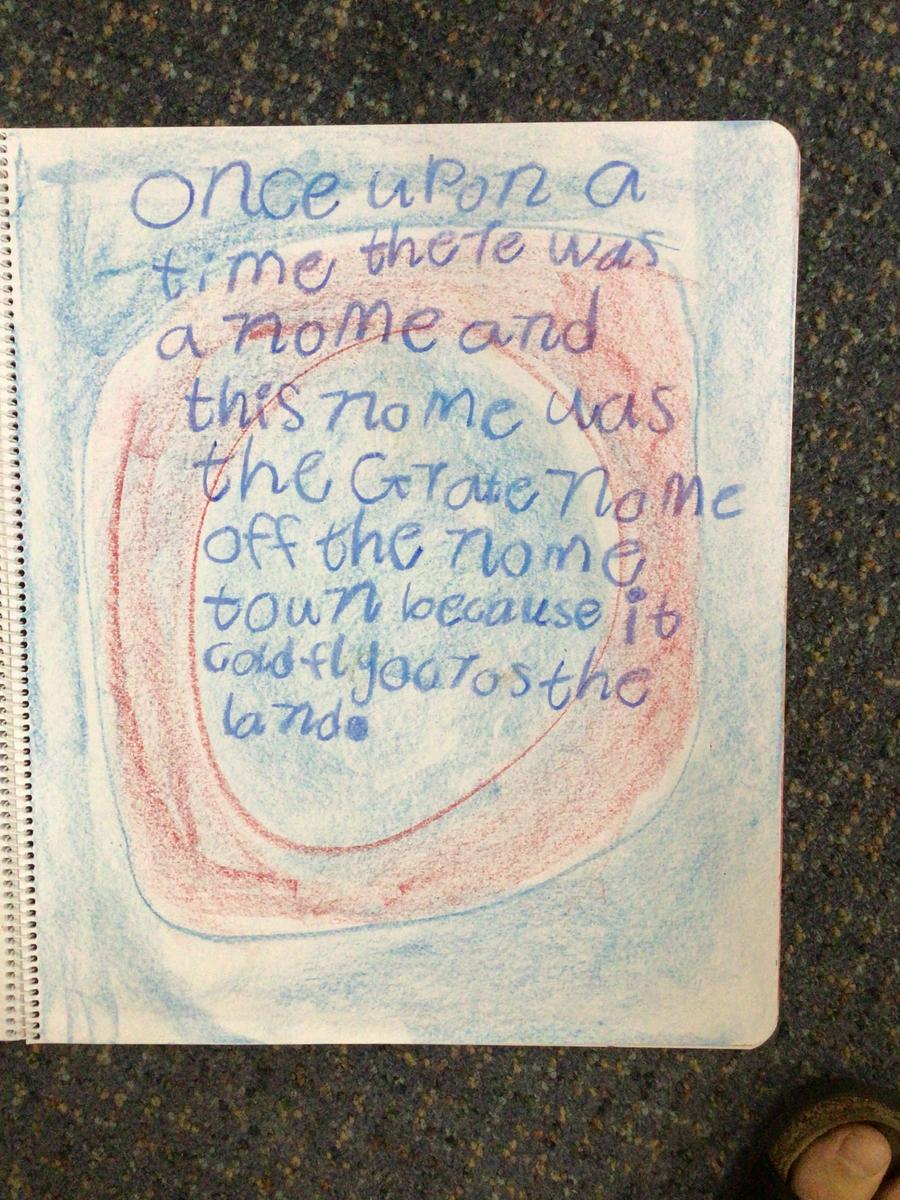 Once upon a
time there was
a nome and
this nome was
the Grate nome
off the nome
town because it
cold fly acros the
land.